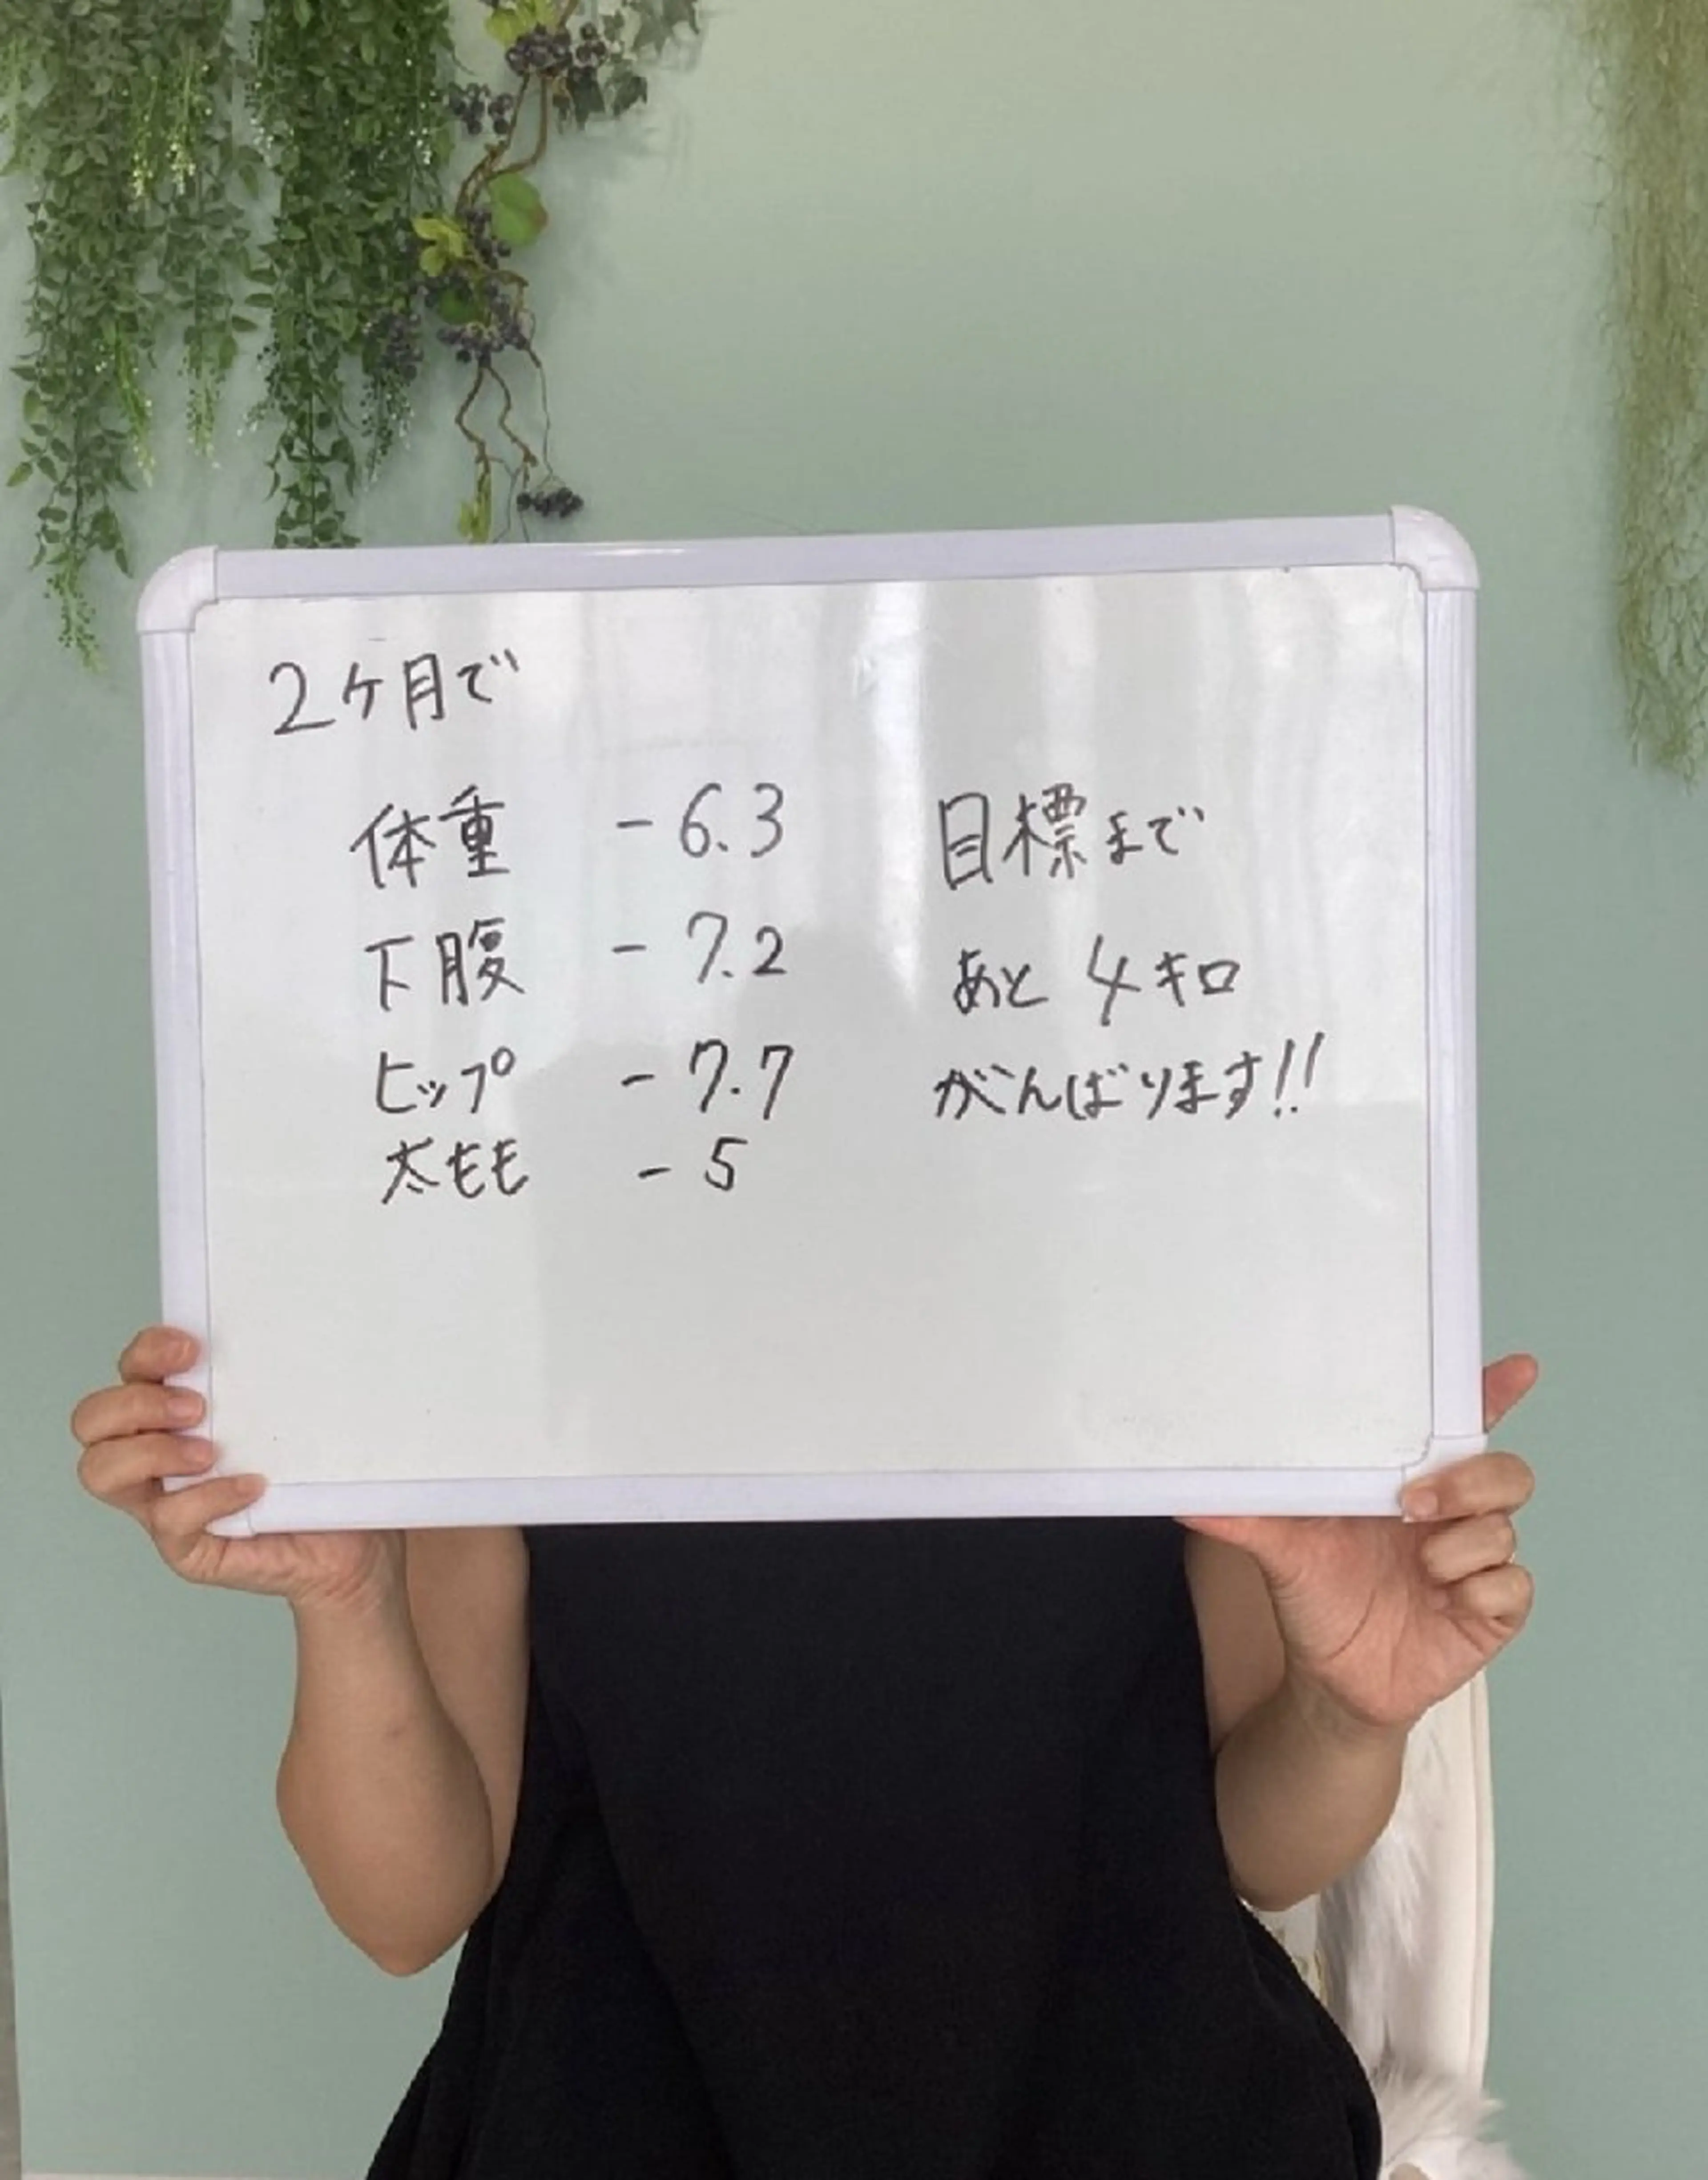 2ヶ月で
体重 -6.3
下腹 -7.2
ヒップ -7.7
太もも -5
目標まで
あと4キロ
がんばります!!